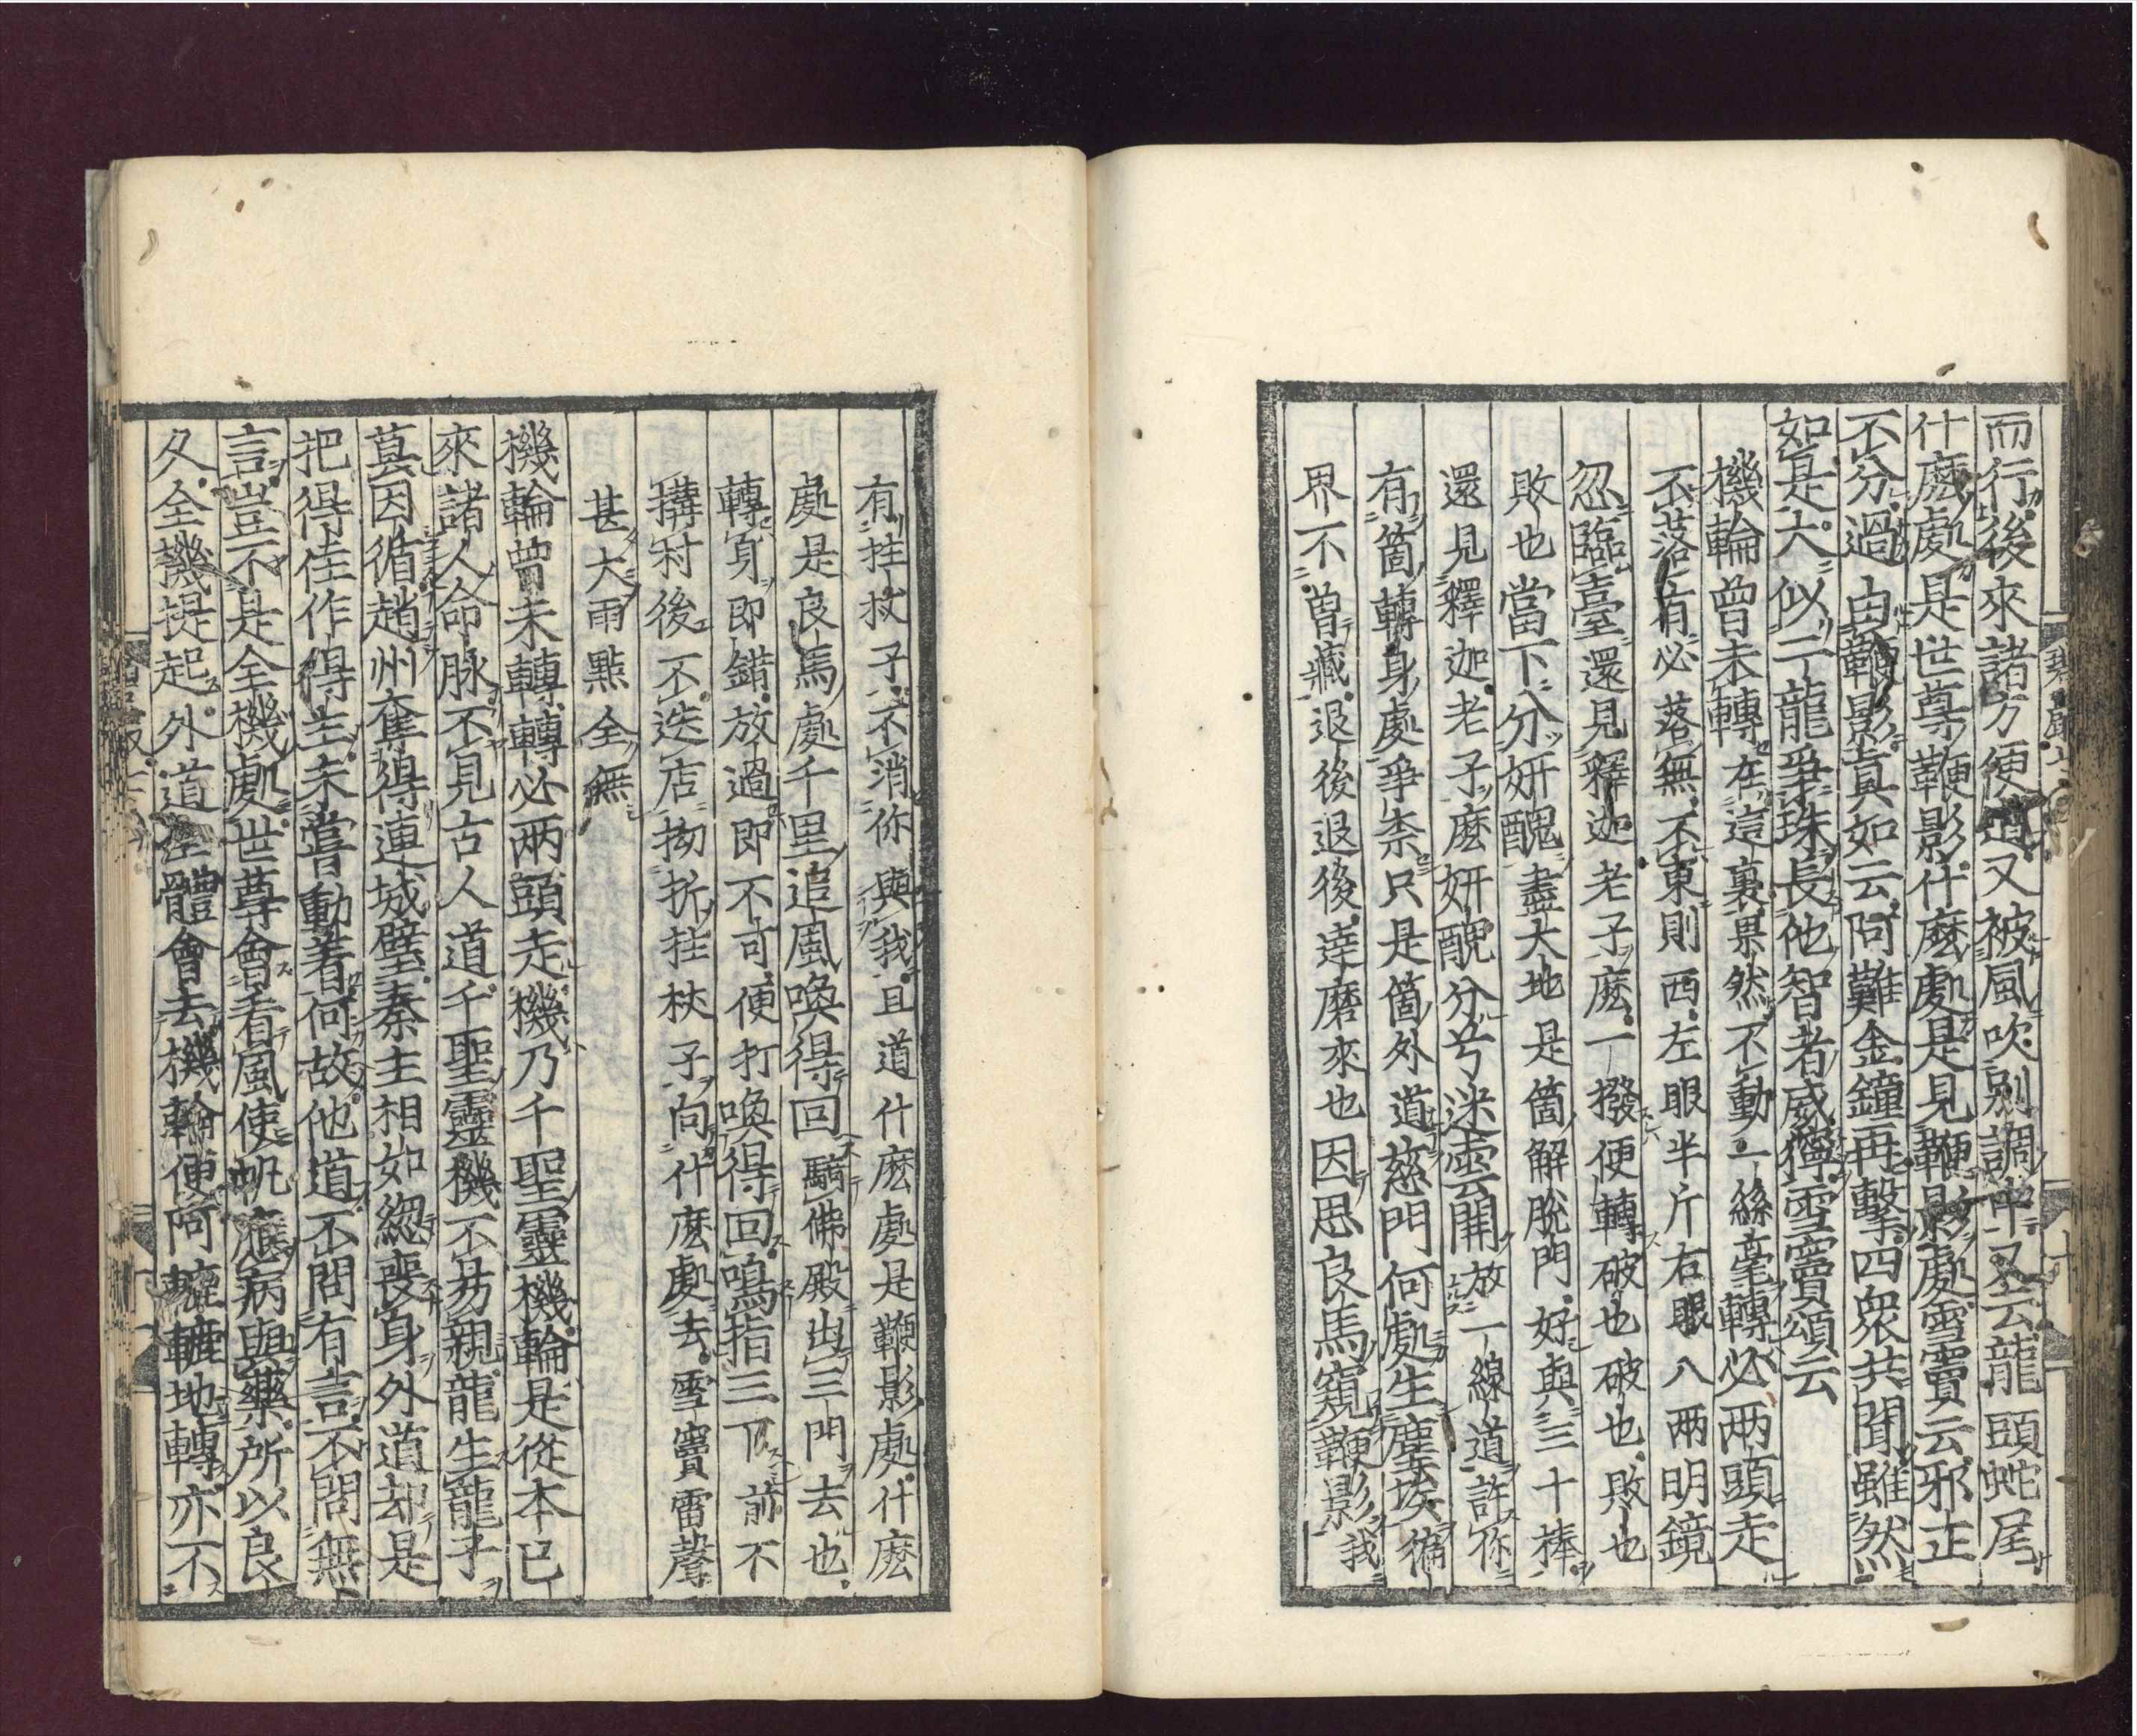 而行後來諸方便道又被風吹別調中又云龍頭蛇尾
什麽處是世尊鞭影什麽處是見鞭影處雪竇云邪正
不分過由鞭影真如云阿難金鐘再擊四衆共聞雖然
如是大似二龍爭珠長他智者威獰雪竇頌云
機輪曾未轉在這裏果然不動一絲毫轉必兩頭走
不落有必落無不東則西左眼半斤右眼八兩明鏡
忽臨臺還見釋迦老子麽一撥便轉破也破也敗也
敗也當下分妍醜盡大地是箇解脫門好與三十棒
還見釋迦老子麽妍醜分兮迷雲開放一線道許你
有箇轉身處爭柰只是箇外道慈門何處生塵埃徧
界不曾藏退後退後達磨來也因思良馬窺鞭影我
有拄杖子不消你與我且道什麽處是鞭影處什麽
處是良馬處千里追風喚得回騎佛殿出三門去也
轉身即錯放過即不可便打喚得回鳴指三下前不
搆村後不迭店拗折拄杖子向什麽處去雪竇雷聲
甚大雨點全無
機輪曾未轉轉必兩頭走機乃千聖靈機輪是從本已
來諸人命脉不見古人道千聖靈機不易親龍生龍子
莫因循趙州奪得連城璧秦主相如緫喪身外道却是
把得住作得主未嘗動着何故他道不問有言不問無
言豈不是全機處世尊會看風使帆應病與藥所以良
久全機提起外道全體會去機輪便阿轆轆地轉亦不